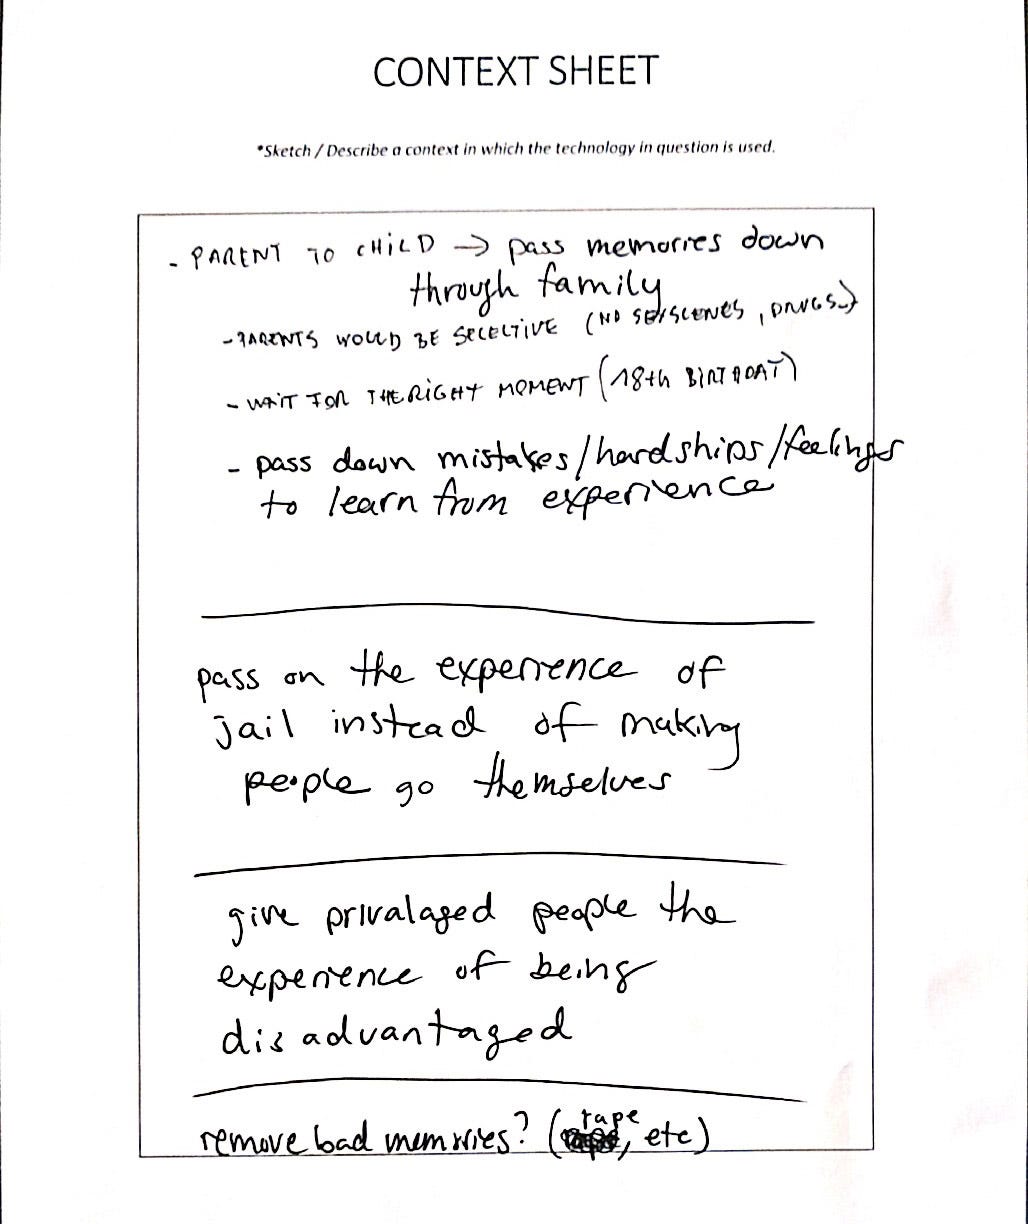 CONTEXT SHEET
*Sketch / Describe a context in which the technology in question is used.
- PARENT TO CHILD → pass memories down
through family
- PARENTS WOULD BE SELECTIVE (NO SEXSCENES, DRUGS..)
- WAIT FOR THE RIGHT MOMENT (18th BIRTHDAY)
- pass down mistakes/hardships/feelings
to learn from experience
pass on the experience of
jail instead of making
people go themselves
give privalaged people the
experience of being
disadvantaged
remove bad memories? (rape, etc)